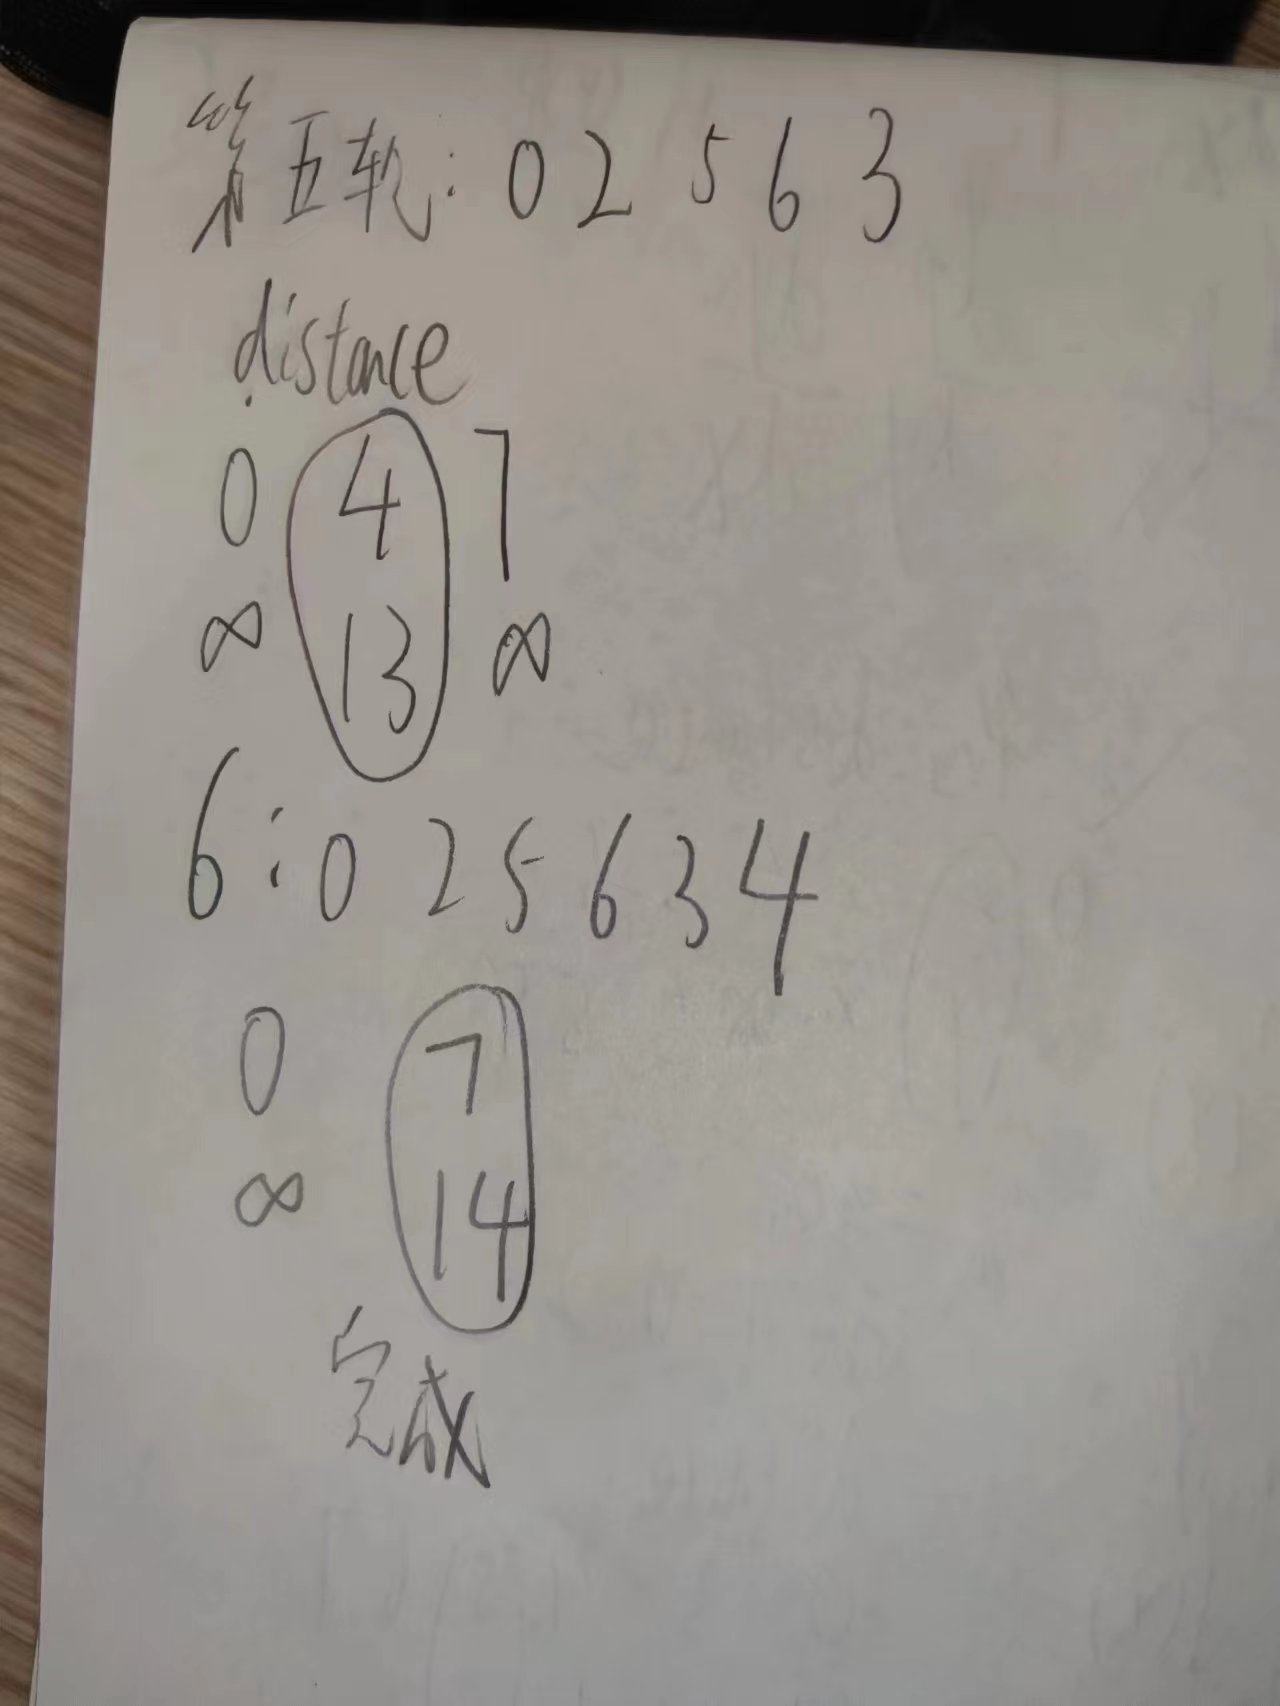 第五轮: 0 2 5 6 3
distance
0 4 7
∞ 13 ∞
6: 0 2 5 6 3 4
0 7
∞ 14
完成